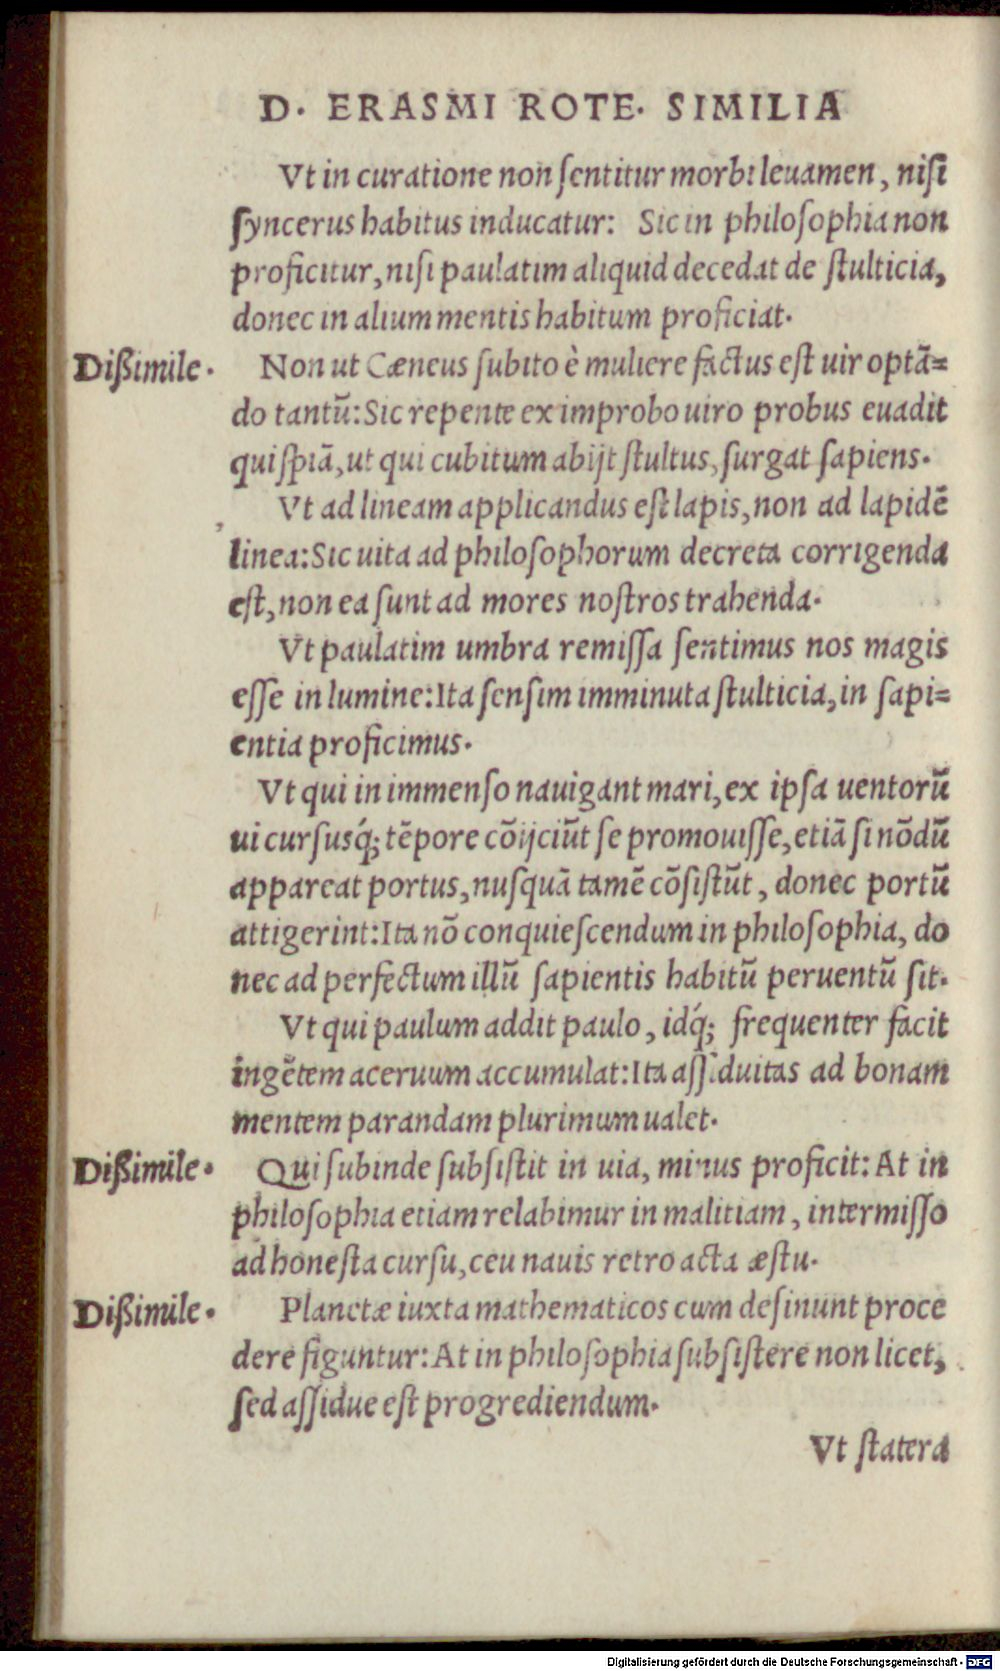 D. ERASMI ROTE. SIMILIA
Vt in curatione non ſentitur morbi leuamen, niſi
ſyncerus habitus inducatur: Sic in philoſophia non
proficitur, niſi paulatim aliquid decedat de ſtulticia,
donec in alium mentis habitum proficiat.
Dißimile. Non ut Cæneus ſubito è muliere factus eſt uir optã=
do tantũ: Sic repente ex improbo uiro probus euadit
quiſpiã, ut qui cubitum abijt ſtultus, ſurgat ſapiens.
Vt ad lineam applicandus eſt lapis, non ad lapidẽ
linea: Sic uita ad philoſophorum decreta corrigenda
eſt, non ea ſunt ad mores noſtros trahenda.
Vt paulatim umbra remiſſa ſentimus nos magis
eſſe in lumine: Ita ſenſim imminuta ſtulticia, in ſapi=
entia proficimus.
Vt qui in immenſo nauigant mari, ex ipſa uentorũ
ui curſusq́; tẽpore cõijciũt ſe promouiſſe, etiã ſi nõdũ
appareat portus, nuſquã tamẽ cõſiſtũt, donec portũ
attigerint: Ita nõ conquieſcendum in philoſophia, do
nec ad perfectum illũ ſapientis habitũ peruentũ ſit.
Vt qui paulum addit paulo, idq́; frequenter facit
ingẽtem aceruum accumulat: Ita aſſiduitas ad bonam
mentem parandam plurimum ualet.
Dißimile. Qui ſubinde ſubſiſtit in uia, minus proficit: At in
philoſophia etiam relabimur in malitiam, intermiſſo
ad honeſta curſu, ceu nauis retro acta æſtu.
Dißimile. Planetæ iuxta mathematicos cum deſinunt proce
dere figuntur: At in philoſophia ſubſiſtere non licet,
ſed aſſidue eſt progrediendum.
Vt ſtatera
Digitalisierung gefördert durch die Deutsche Forschungsgemeinschaft - DFG